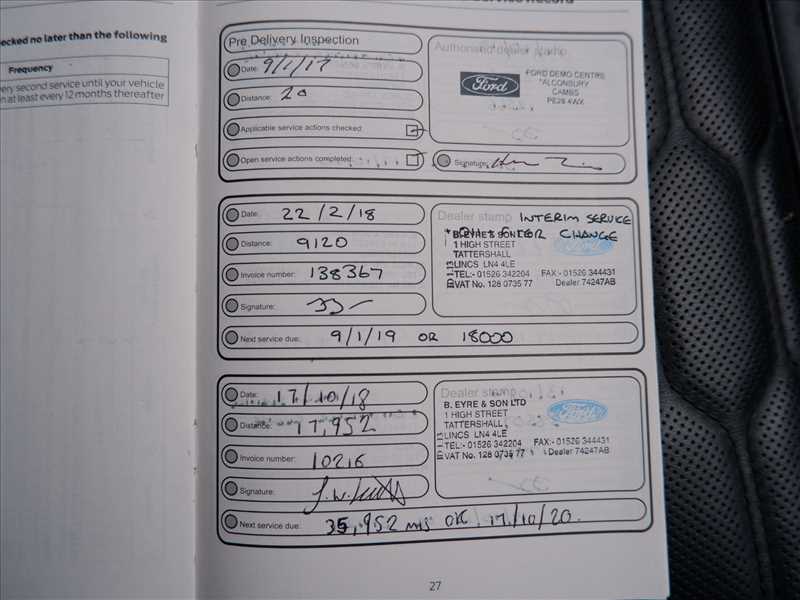 ecked no later than the following
Frequency
ery second service until your vehicle
n at least every 12 months thereafter
Pre Delivery Inspection
Date: 9/1/17
Distance: 20
Applicable service actions checked
Open service actions completed:
Authorised dealer stamp
Ford
FORD DEMO CENTRE
ALCONBURY
CAMBS
PE28 4WX
Signature:
Date: 22/2/18
Distance: 9120
Invoice number: 138367
Signature:
Next service due: 9/1/19 OR 18000
Dealer stamp INTERIM SERVICE
CHANGE
B. EYRE & SON LTD
1 HIGH STREET
TATTERSHALL
LINCS LN4 4LE
TEL:- 01526 342204 FAX:- 01526 344431
VAT No. 128 0735 77 Dealer 74247AB
Ford
Date: 17/10/18
Distance: 17,952
Invoice number: 10216
Signature:
Next service due: 35,952 mls OR 17/10/20.
Dealer stamp
B. EYRE & SON LTD
1 HIGH STREET
TATTERSHALL
LINCS LN4 4LE
TEL:- 01526 342204 FAX:- 01526 344431
VAT No. 128 0735 77 Dealer 74247AB
Ford
27